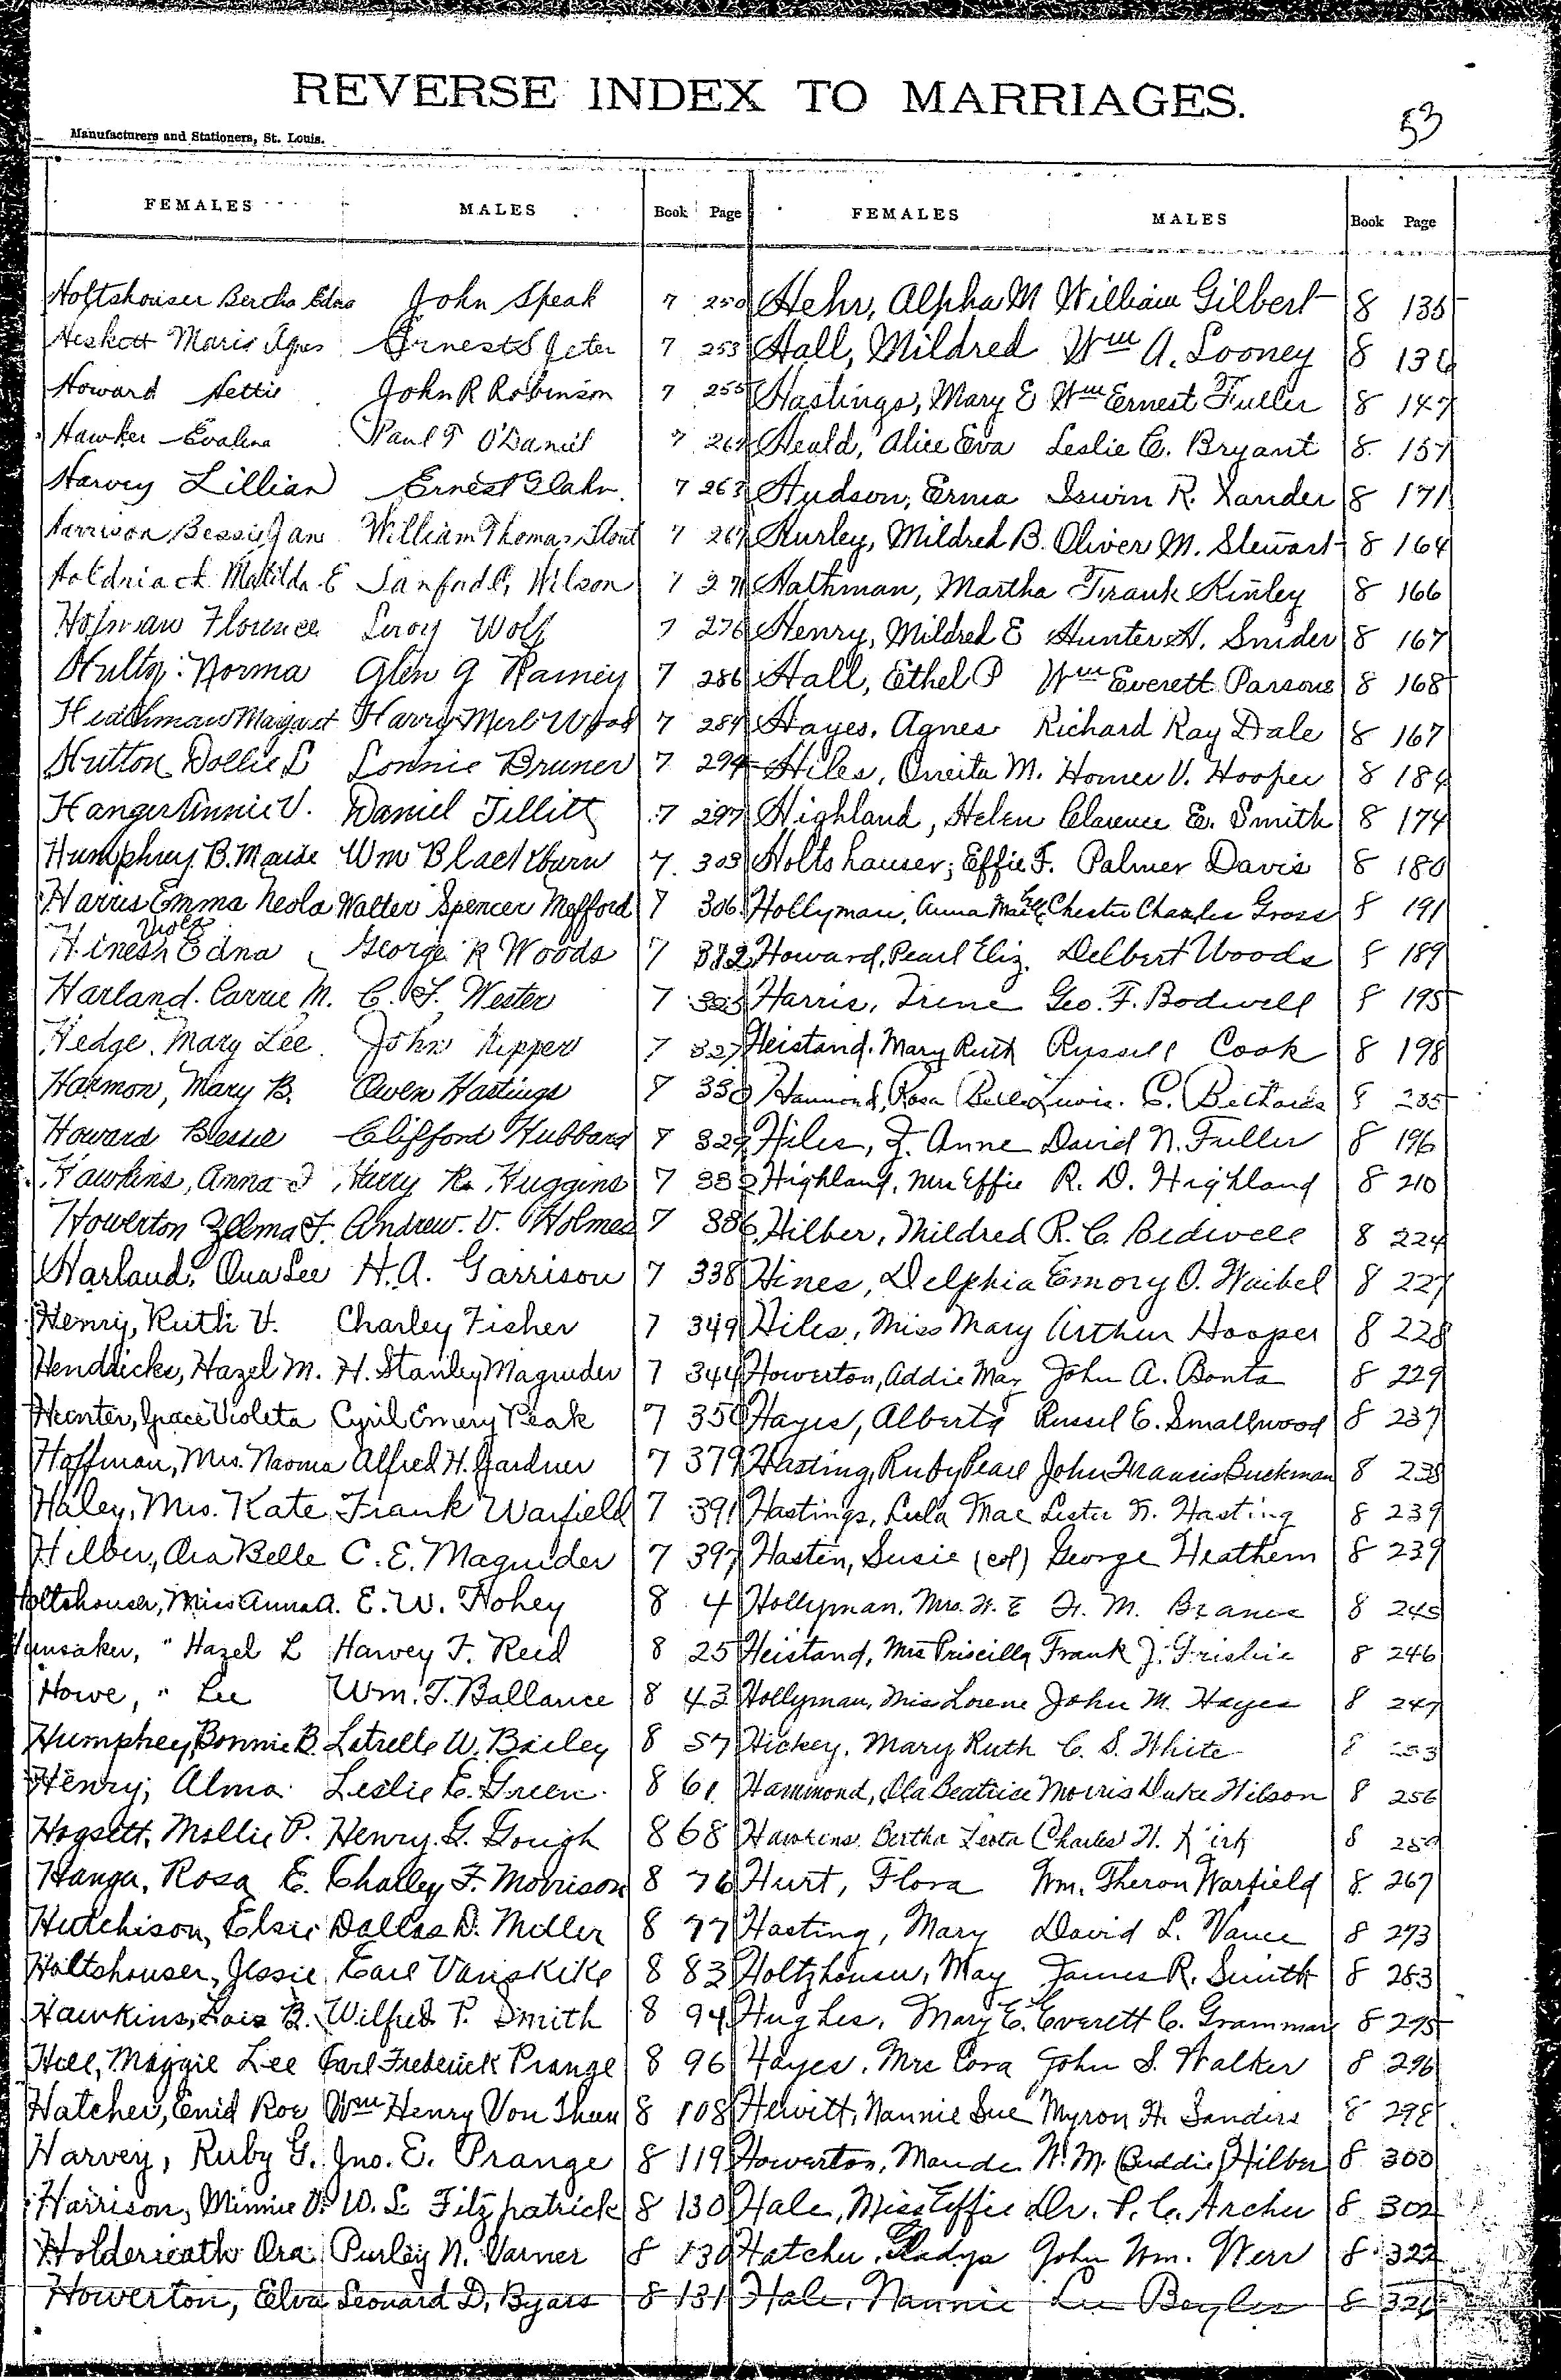 REVERSE INDEX TO MARRIAGES.
53
Manufacturers and Stationers, St. Louis.
FEMALES MALES Book Page FEMALES MALES Book Page
Holtshouser Bertha Edna John Speak 7 250
Heskett Marie Agnes Ernest S Jeter 7 253
Howard Nettie John R Robinson 7 255
Hawker Evalina Paul F O'Daniel 7
Harvey Lillian Ernest Glahn 7 263
Harrison Bessie Jane William Thomas Stout 7 267
Matilda E Sanford C. Wilson 7 271
Hofman Florence Leroy Wolf 7 276
Hultz Norma Glen G Ramey 7 286
Heathman Margaret Harry Merl Wood 7 289
Hutton Dollie L Lonnie Bruner 7 294
Hanger Annie V. Daniel Tillitt 7 297
Humphrey, B. Maude Wm Blackburn 7 303
Harris Emma Neola Walter Spencer Mefford 7 306
Hines, Viola Edna George R Woods 7 312
Harland. Carrie M. C. F. Wester 7
Hedge, Mary Lee John Kipper 7 327
Harmon, Mary B. Owen Hastings 7 330
Howard Bessie Clifford Hubbard 7 329
Hawkins, Anna J Harry R. Huggins 7 332
Howerton Zelma F. Andrew. V. Holmes 7 336
Harland, Ona Lee H. A. Garrison 7 338
Henry, Ruth V. Charley Fisher 7 349
Hendricks, Hazel M. H. Stanley Magruder 7 344
Hunter, Grace Violeta Cyril Emery Peak 7 350
Hoffman, Mrs. Naoma Alfred H. Gardner 7 379
Haley, Mrs. Kate Frank Warfield 7 391
Hilber, Ora Belle C. E. Magruder 7 397
Holtshouser, Miss Anna A. E. W. Hohey 8 4
Hunsaker, " Hazel L Harvey F. Reid 8 25
Howe, " Lee Wm. T. Ballance 8 43
Humphey, Bonnie B. Latrelle W. Bailey 8 57
Henry, Alma Leslie E. Green 8 61
Hogsett, Mollie P. Henry G. Gough 8 68
Hanger, Rosa E. Charley F. Morrison 8 76
Hutchison, Elsie Dallas D. Miller 8 77
Holtshouser, Jessie Earl Vanskike 8 83
Hawkins, Lois B. Wilfred P. Smith 8 94
Hill, Maggie Lee Carl Frederick Prange 8 96
Hatcher, Enid Roe Wm Henry Von Thun 8 108
Harvey, Ruby G. Jno. E. Prange 8 119
Harrison, Minnie V. W. L. Fitzpatrick 8 130
Holderieath Ora Purley N. Varner 8 130
Howerton, Elva Leonard D. Byars 8 131
Hehr, Alpha M William Gilbert 8 135
Hall, Mildred Wm A. Looney 8 136
Hastings, Mary E Wm Ernest Fuller 8 147
Heald, Alice Eva Leslie C. Bryant 8 157
Hudson, Erma Irwin R. Sander 8 171
Hurley, Mildred B. Oliver M. Stewart 8 164
Hathman, Martha Frank Kinley 8 166
Henry, Mildred E Hunter H. Snider 8 167
Hall, Ethel P Wm Everett Parsons 8 168
Hayes, Agnes Richard Ray Dale 8 167
Hiles, Orreita M. Homer V. Hooper 8 184
Highland, Helen Clarence E. Smith 8 174
Holtshauser, Effie F. Palmer Davis 8 180
Hollyman, Anna Chester Charles Gross 8 191
Howard, Pearl Eliz. Delbert Woods 8 189
Harris, Irene Geo. F. Bodwell 8 195
Heistand, Mary Ruth Russell Cook 8 198
Hammond, Rosa Belle Lewis. C. 8 205
Hiles, F. Anne David N. Fuller 8 196
Highland, Mrs Effie R. D. Highland 8 210
Hilber, Mildred R. C. Bidwell 8 224
Hines, Delphia Emory O. Waibel 8 227
Hiles, Miss Mary Arthur Hooper 8 228
Howerton, Addie May John A. Bonta 8 229
Hayes, Alberta Russel E. Smallwood 8 237
Hasting, Ruby Pearl John Francis Buckman 8 238
Hastings, Lula Mae Lester N. Hasting 8 239
Hasten, Susie (col) George Heathern 8 239
Hollyman, Mrs. H. E H. M. 8 245
Heistand, Mrs Priscilla Frank J. Frisbie 8 246
Hollyman, Miss Lorene John M. Hayes 8 247
Hickey, Mary Ruth C. S. White 8 253
Hammond, Ola Beatrice Morris Duke Wilson 8 256
Hawkins, Bertha Leota Charles H. Kirk 8
Hurt, Flora Wm. Theron Warfield 8 267
Hasting, Mary David L. Vance 8 273
Holtzhouser, May James R. Smith 8 283
Hughes, Mary E. Everett C. Grammar 8 295
Hayes, Mrs Cora John S. Walker 8 296
Hewitt, Nannie Sue Myron H. Sanders 8 298
Howerton, Maude W. M. (Buddie) Hilber 8 300
Hale, Miss Effie Dr. P. C. Archer 8 302
Hatcher, Gladys John Wm. Werr 8 322
Hale, Nannie Lee Beyler 8 326